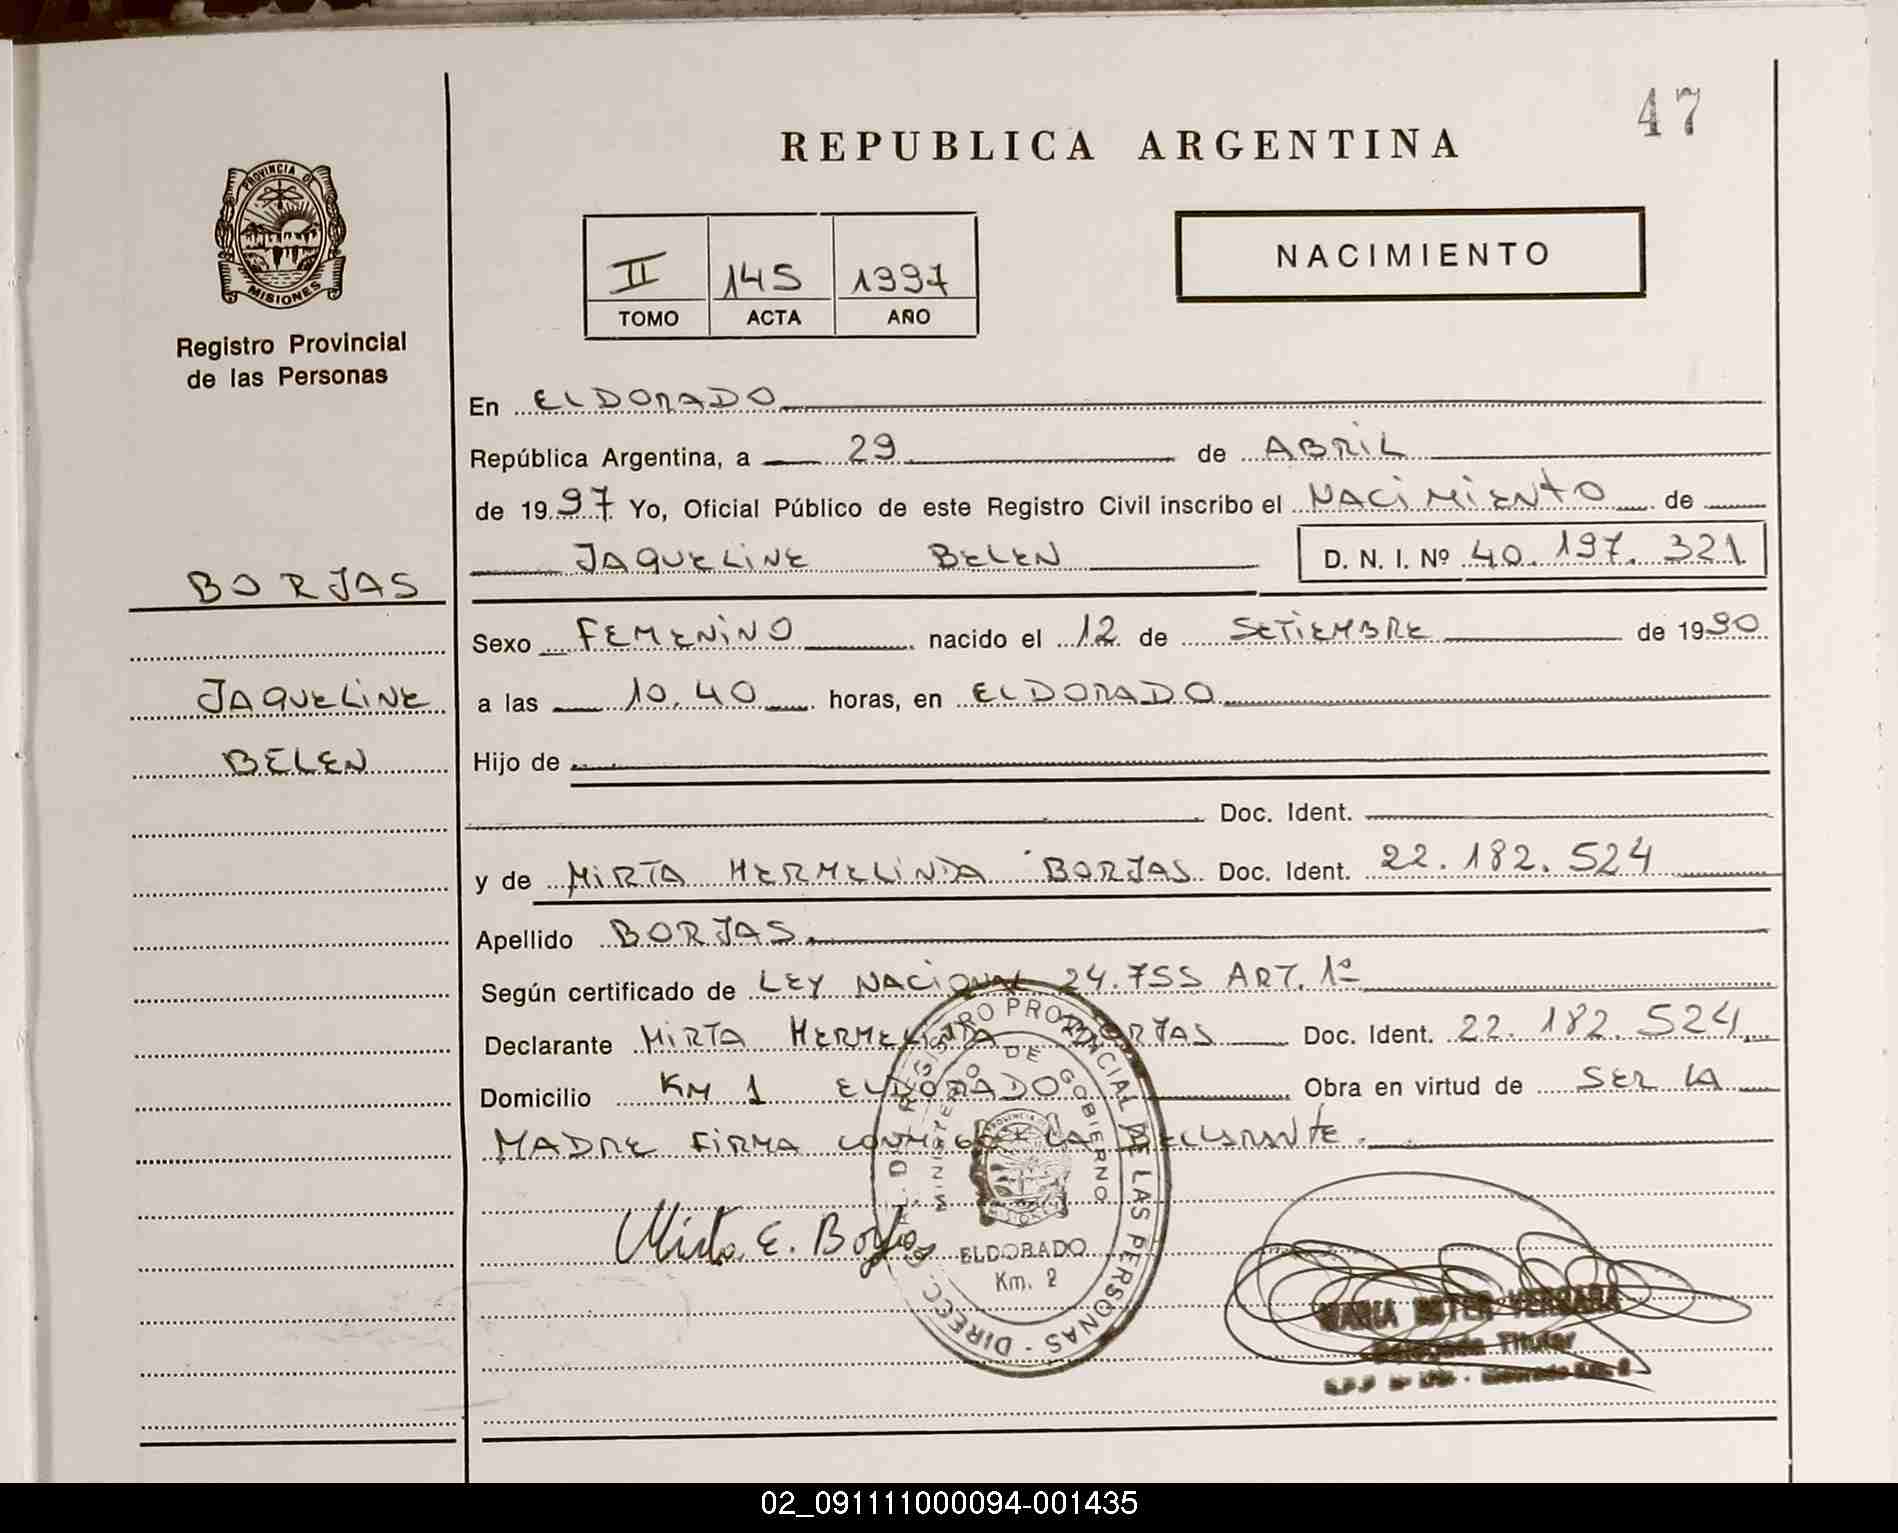 47
REPUBLICA ARGENTINA
PROVINCIA DE
MISIONES
Registro Provincial
de las Personas
II 145 1997
TOMO ACTA AÑO
NACIMIENTO
En ELDORADO
República Argentina, a 29 de ABRIL
de 1997 Yo, Oficial Público de este Registro Civil inscribo el NACIMIENTO de
JAQUELINE BELEN D. N. I. Nº 40.197.321
BORJAS
Sexo FEMENINO nacido el 12 de SETIEMBRE de 1990
JAQUELINE
a las 10.40 horas, en ELDORADO
BELEN
Hijo de
Doc. Ident.
y de MIRTA HERMELINDA BORJAS Doc. Ident. 22.182.524
Apellido BORJAS
Según certificado de LEY NACIONAL 24.755 ART. 1º
Declarante MIRTA HERMELINDA BORJAS Doc. Ident. 22.182.524
Domicilio KM 1 ELDORADO Obra en virtud de SER LA
MADRE FIRMA CONMIGO LA DECLARANTE.
Mirta E. Borjas
REGISTRO PROVINCIAL DE LAS PERSONAS - DIRECC.
MINISTERIO DE GOBIERNO
ELDORADO
Km. 2
MARIA ESTER VERGARA
Delegada Titular
02_091111000094-001435